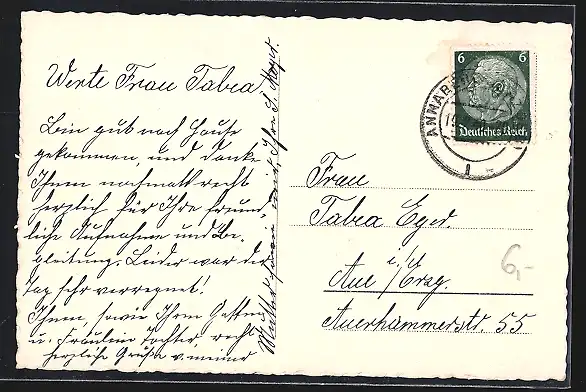 Werte Frau Tabea!
Bin gut nach Hause
gekommen, und danke
Ihnen nochmals recht
herzlich für Ihre freund-
liche Aufnahme und Be-
gleitung. Leider war der
Tag sehr verregnet!
Ihnen, sowie Ihrem Gatten
u. Fräulein Tochter, recht
herzliche Grüße v. meiner
Mutter und Ihre
6 6
Deutsches Reich
ANNABERG
Frau
Tabea Eger.
i./d
Aue/Erzg.
Auerhammerstr. 55
6,-